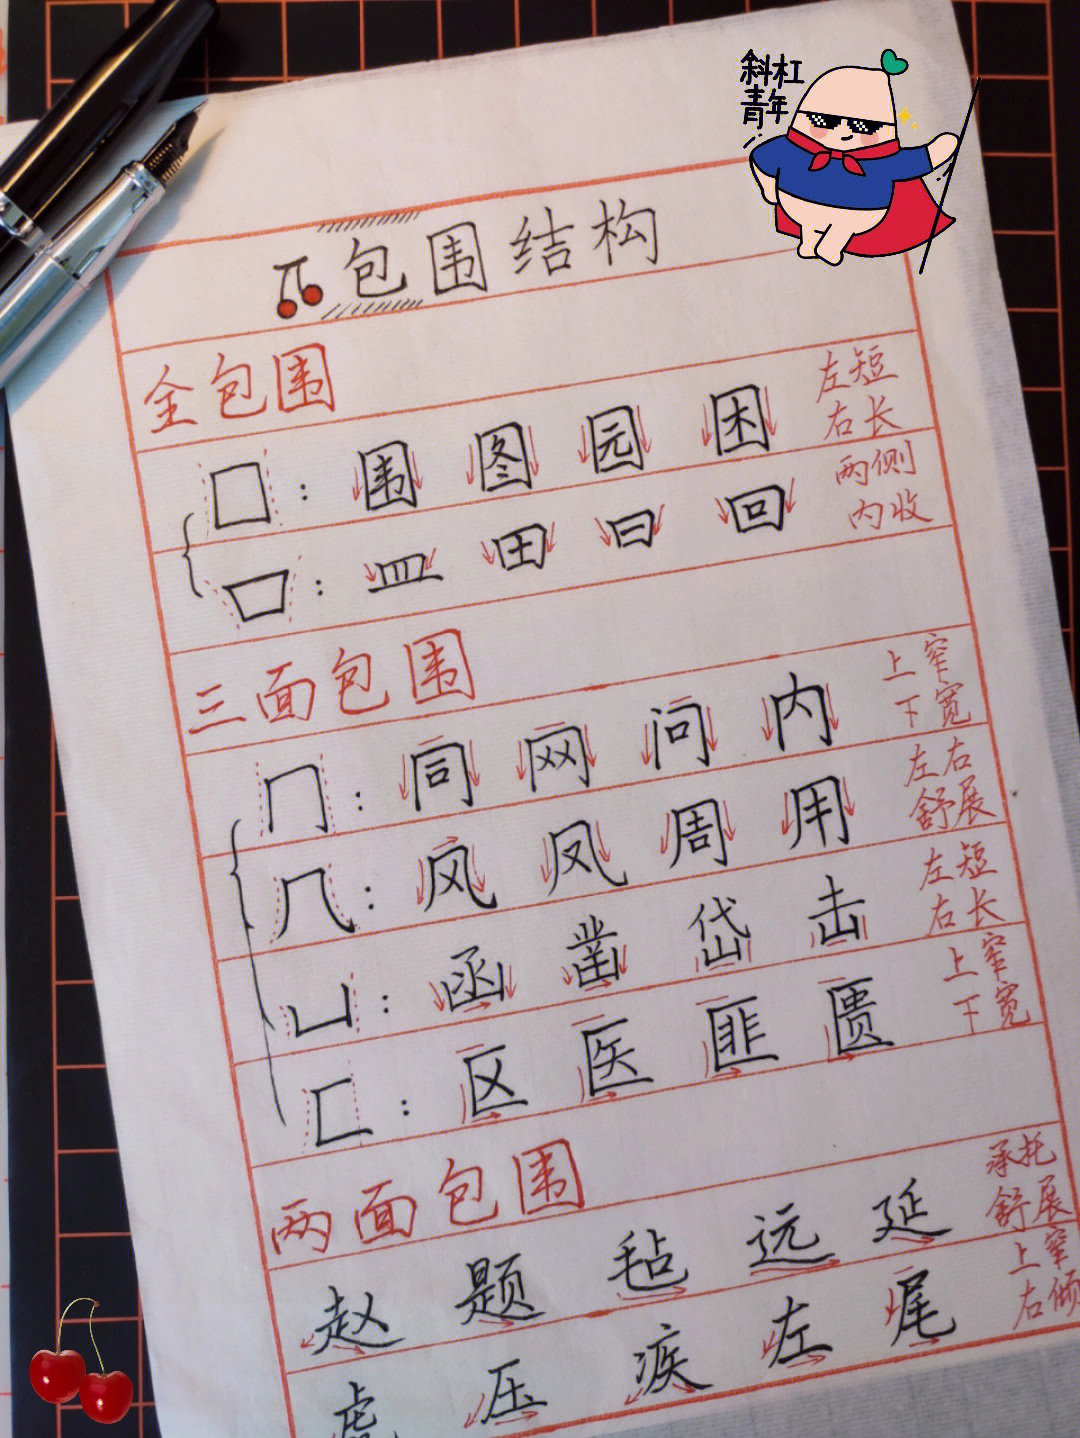 斜杠
青年
包围结构
全包围
囗：围 图 园 困 左短右长
口：皿 田 曰 回 两侧内收
三面包围
冂：同 网 问 内 上窄下宽
几：风 凤 周 用 左右舒展
凵：函 凿 岱 击 左短右长
匚：区 医 匪 匮 上窄下宽
两面包围
赵 题 毡 远 延 承托舒展
虎 压 疾 左 尾 上窄右倾